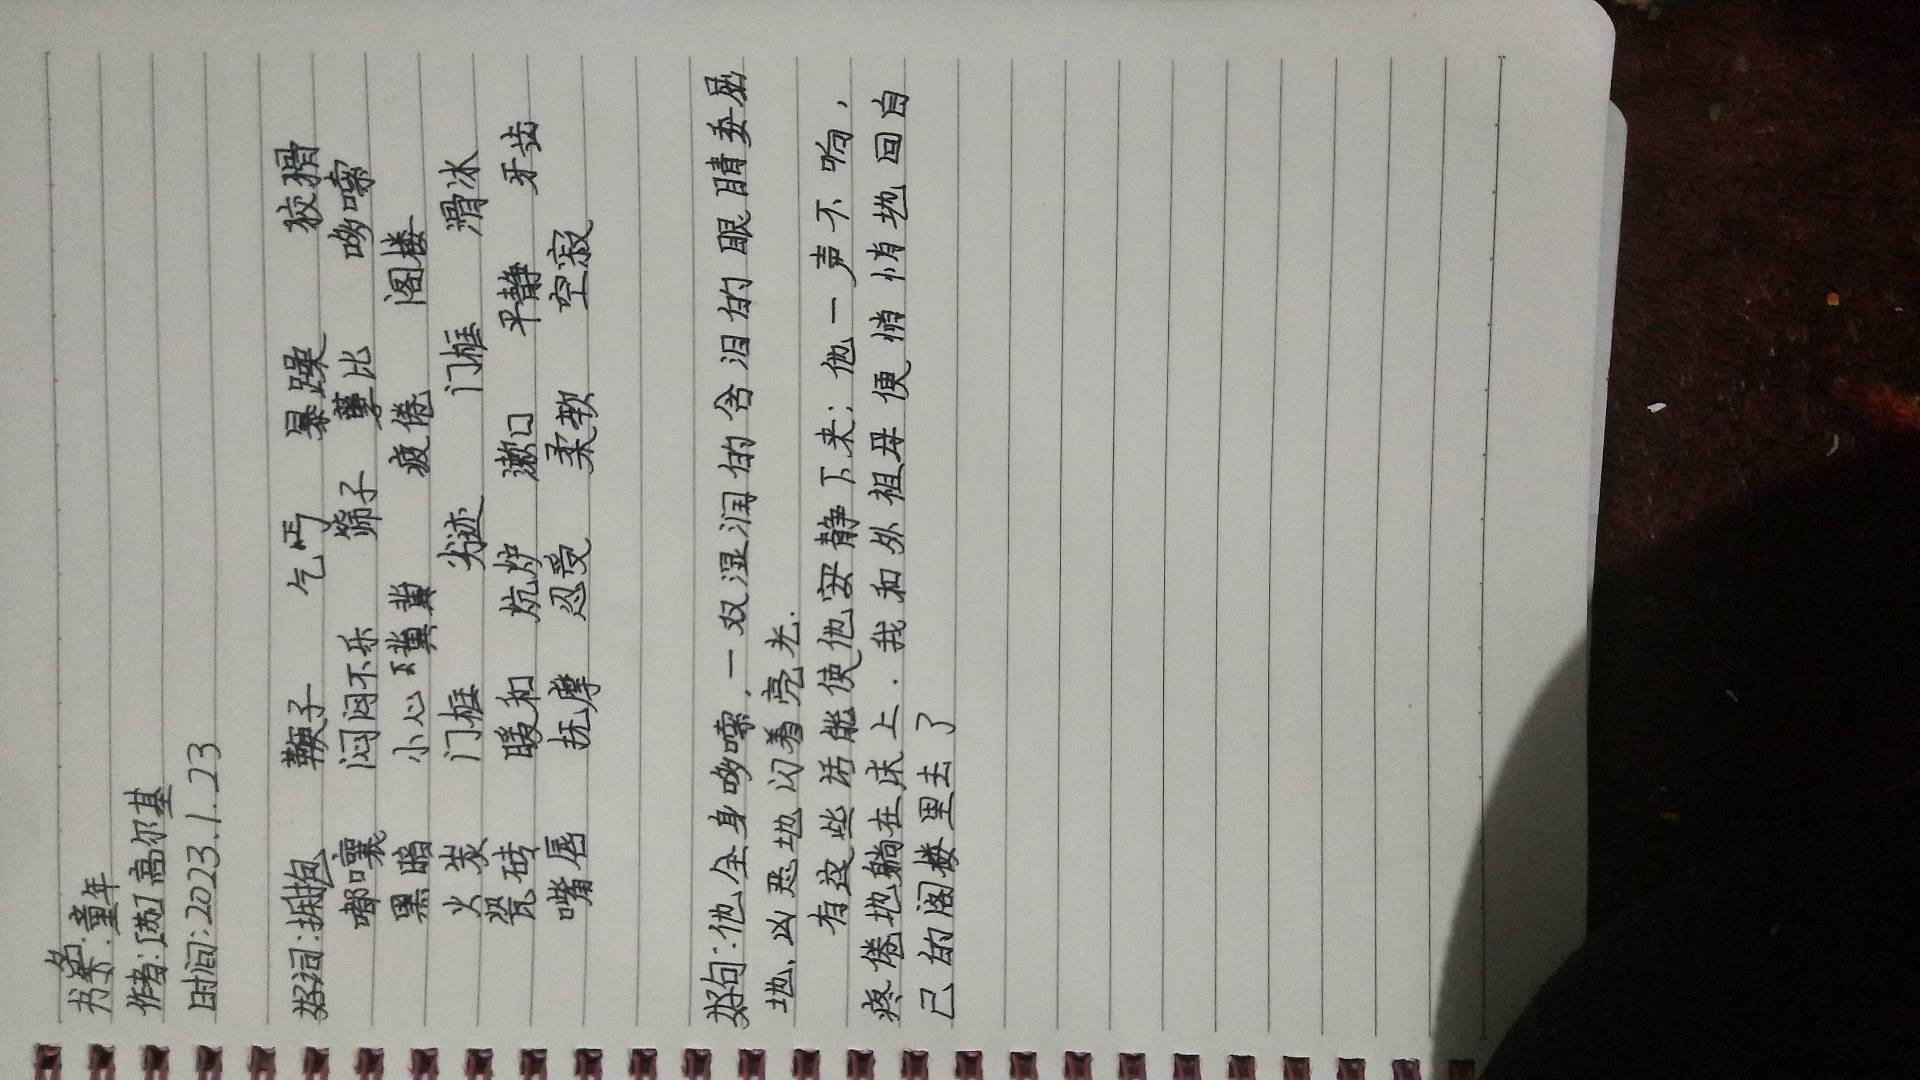 书名:童年
作者:[苏]高尔基
时间:2023.1.23
好词:拥抱 鞭子 乞丐 暴躁 狡猾
嘟囔 闷闷不乐 筛子 比 哆嗦
黑暗 小心翼翼 疲倦 阁楼
火炭 门框 劣迹 门框 滑冰
瓷砖 暖和 炕炉 漱口 平静 牙齿
嘴唇 抚摩 忍受 柔软 空寂
好句:他全身哆嗦,一双湿润的含泪的眼睛委屈
地、凶恶地闪着亮光.
有这些话能使他安静下来;他一声不响,
疼倦地躺在床上.我和外祖母便悄悄地回自
己的阁楼里去了